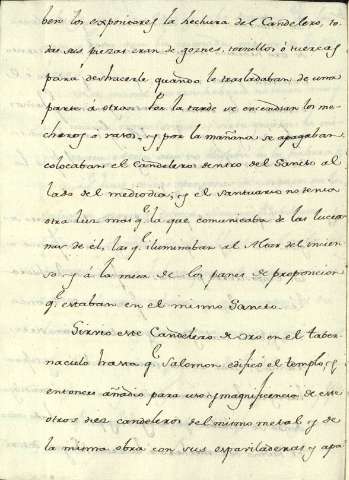 ben los expositores la hechura del Candelero, to-
das sus piezas eran de goznes, tornillos ó tuercas
para deshacerle quando le trasladaban de una
parte á otra. Por la tarde se encendian los me-
cheros ó vasos, y por la mañana se apagaban.
colocaban el candelero dentro del Sancto al
lado del mediodia, y el santuario no tenia
otra luz mas q.e la que comunicaba de las lucer-
nas de él, las q.e iluminaban al Altar del incien-
so y á la mesa de los panes de proposicion
q.e estaban en el mismo Sancto.
Sirvió este Candelero de Oro en el taber-
naculo hasta q.e Salomon edificó el templo, y
entonces añadio para uso y magnificencia de este
otros diez candeleros del mismo metal y de
la misma obra con sus espaviladeras y apa